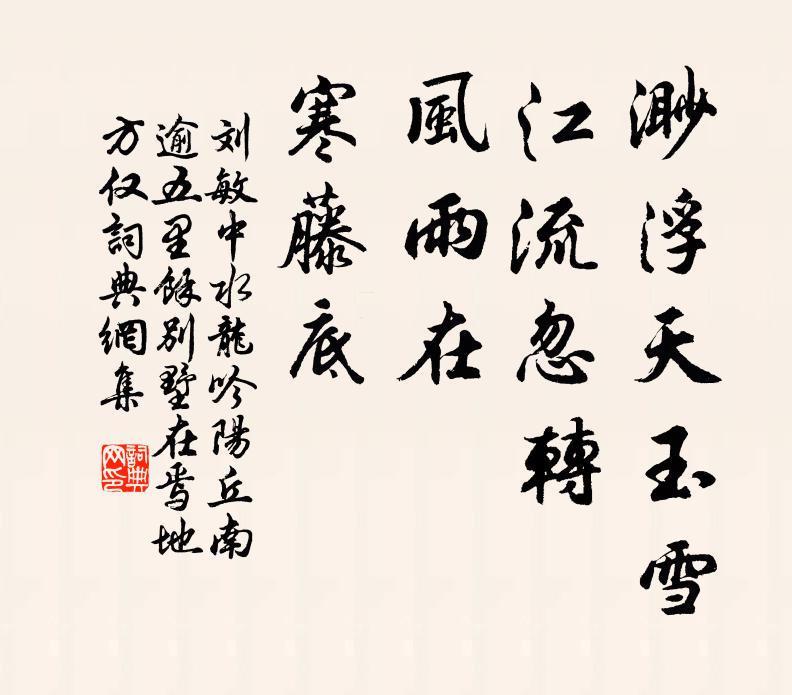 渺浮天玉雪
江流忽轉
風雨在
寒藤底
刘敏中水龍吟陽丘南
逾五里餘別墅在焉地
方仅詞典網集
詞典网印